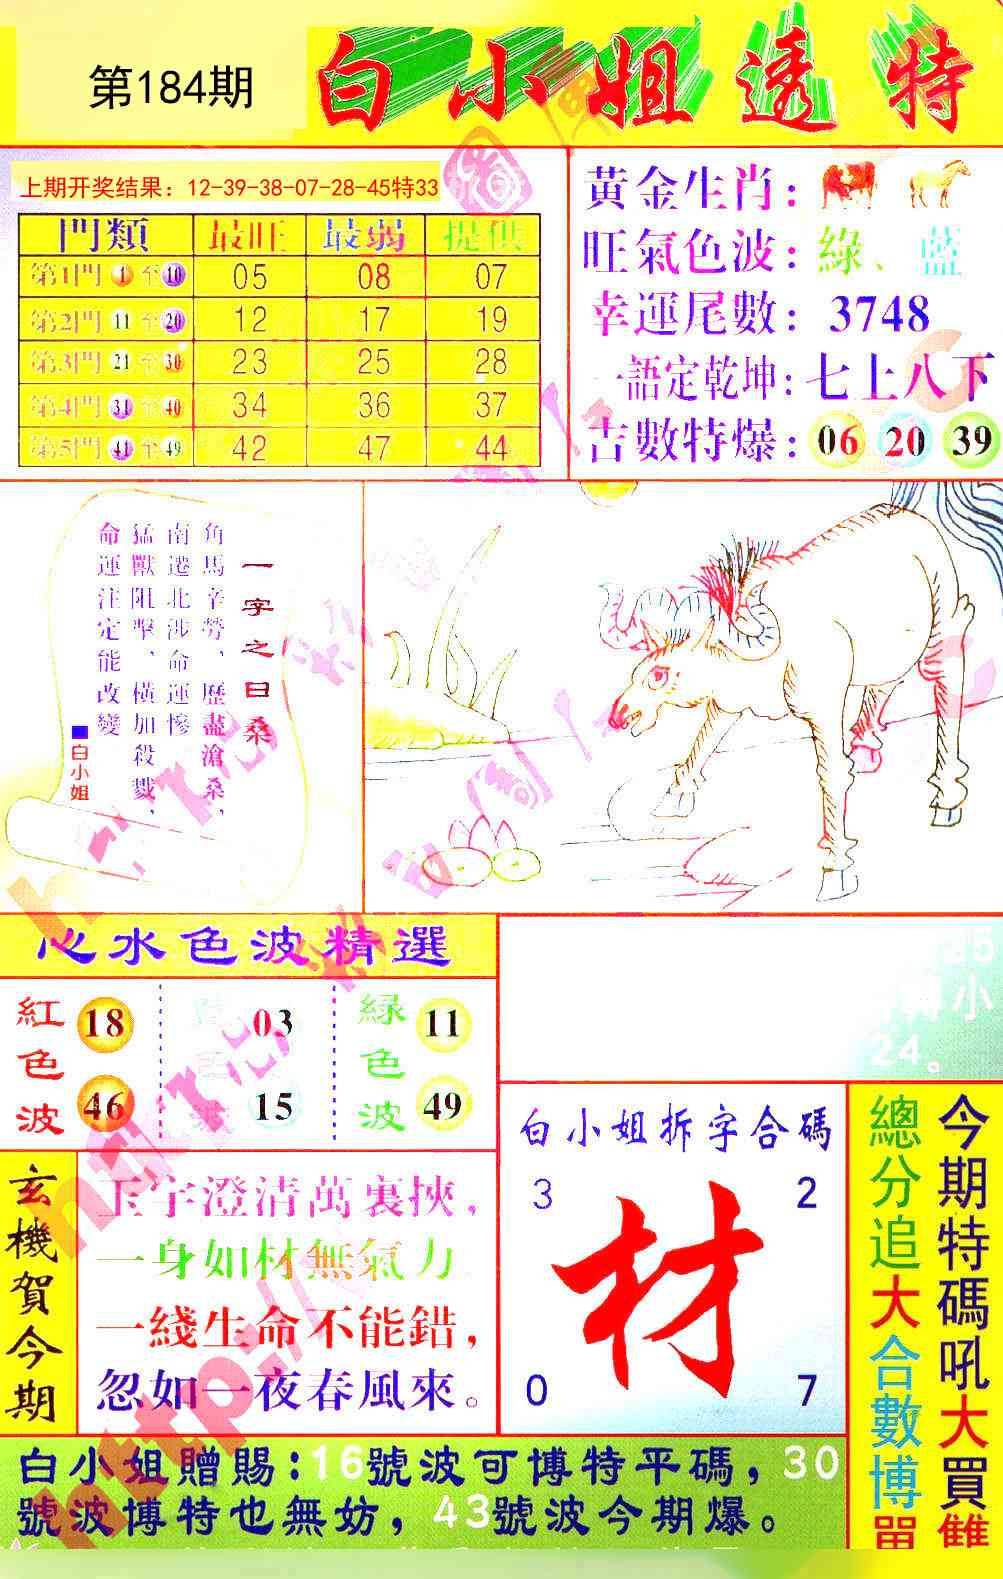 第184期
白小姐透特
上期开奖结果：12-39-38-07-28-45特33
門類 最旺 最弱 提供
第1門 1 至 10 05 08 07
第2門 11 至 20 12 17 19
第3門 21 至 30 23 25 28
第4門 31 至 40 34 36 37
第5門 41 至 49 42 47 44
黄金生肖：
旺氣色波：綠、藍
幸運尾數：3748
一語定乾坤：七上八下
吉數特爆：06 20 39
一字之曰桑
角馬辛勞、歷盡滄桑，
南遷北涉命運慘
猛獸阻擊、橫加殺戮，
命運注定能改變
■白小姐
心水色波精選
紅色波 18 46
03 15
緑色波 11 49
小
24。
白小姐拆字合碼
3 2
材
0 7
今期特碼吼大買雙
總分追大合數博單
玄機賀今期
玉宇澄清萬裏挾，
一身如材無氣力
一綫生命不能錯，
忽如一夜春風來。
白小姐贈賜：16號波可博特平碼，30
號波博特也無妨，43號波今期爆。